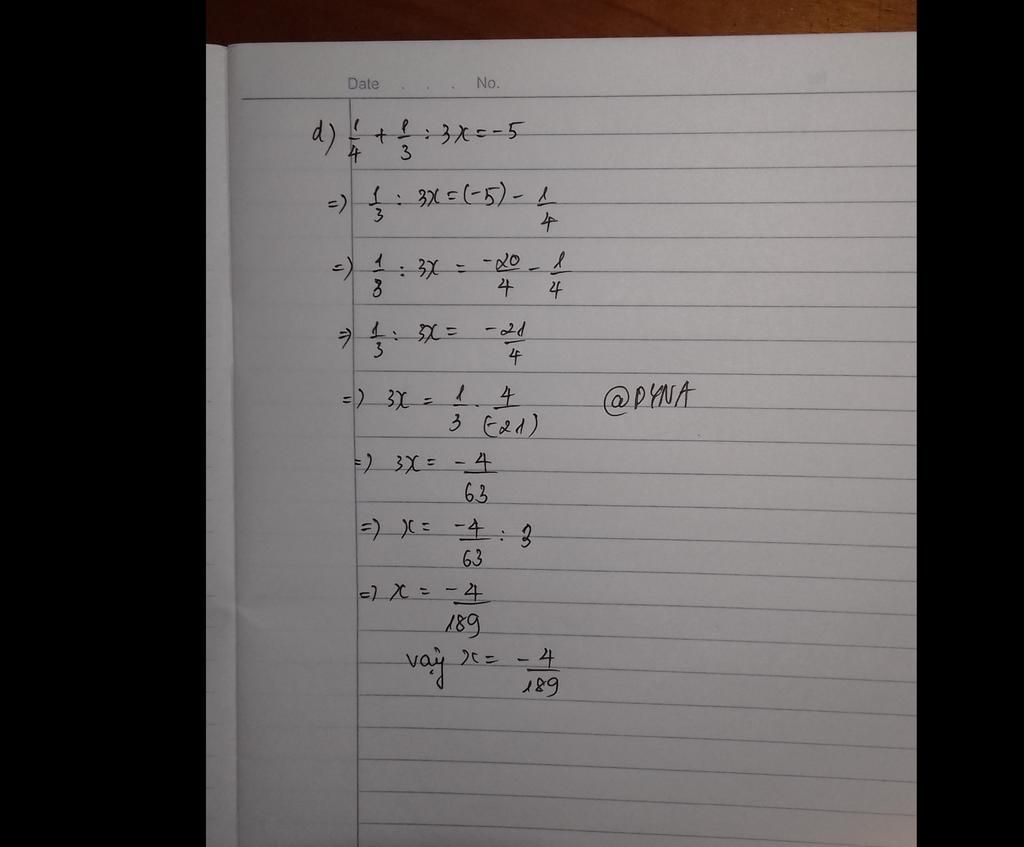 Date . . . No.
d) 1/4 + 1/3 : 3x = -5
=) 1/3 : 3x = (-5) - 1/4
=) 1/3 : 3x = -20/4 - 1/4
=) 1/3 : 3x = -21/4
=) 3x = 1/3 . 4/(-21) @DYNA
=) 3x = -4/63
=) x = -4/63 : 3
=) x = -4/189
vậy x = -4/189